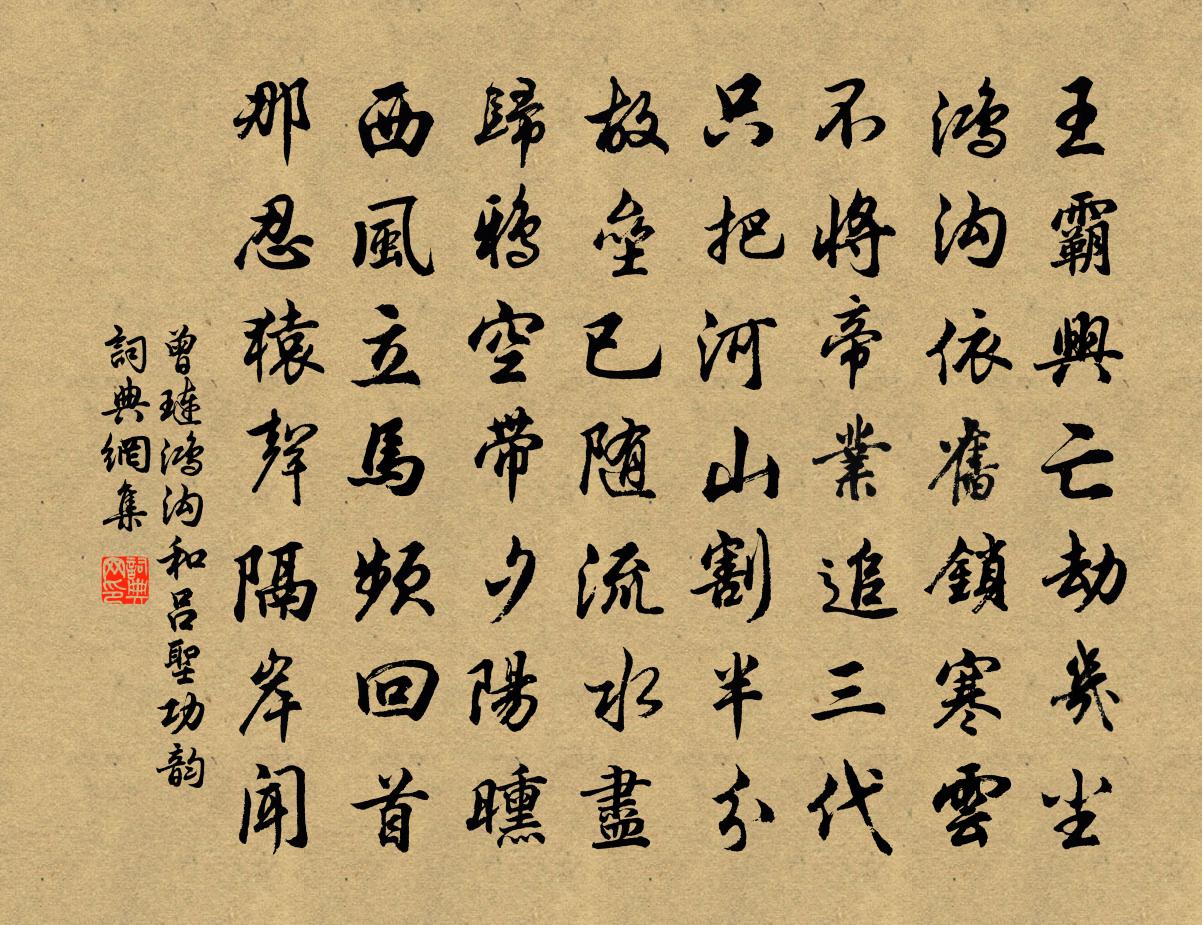 王霸興亡劫幾尘
鴻沟依舊鎖寒雲
不將帝業追三代
只把河山割半分
故垒已随流水盡
歸鴉空帶夕陽曛
西風立馬頻回首
那忍猿聲隔岸聞
曾璉鴻沟和吕聖功韵
詞典網集
詞典网印